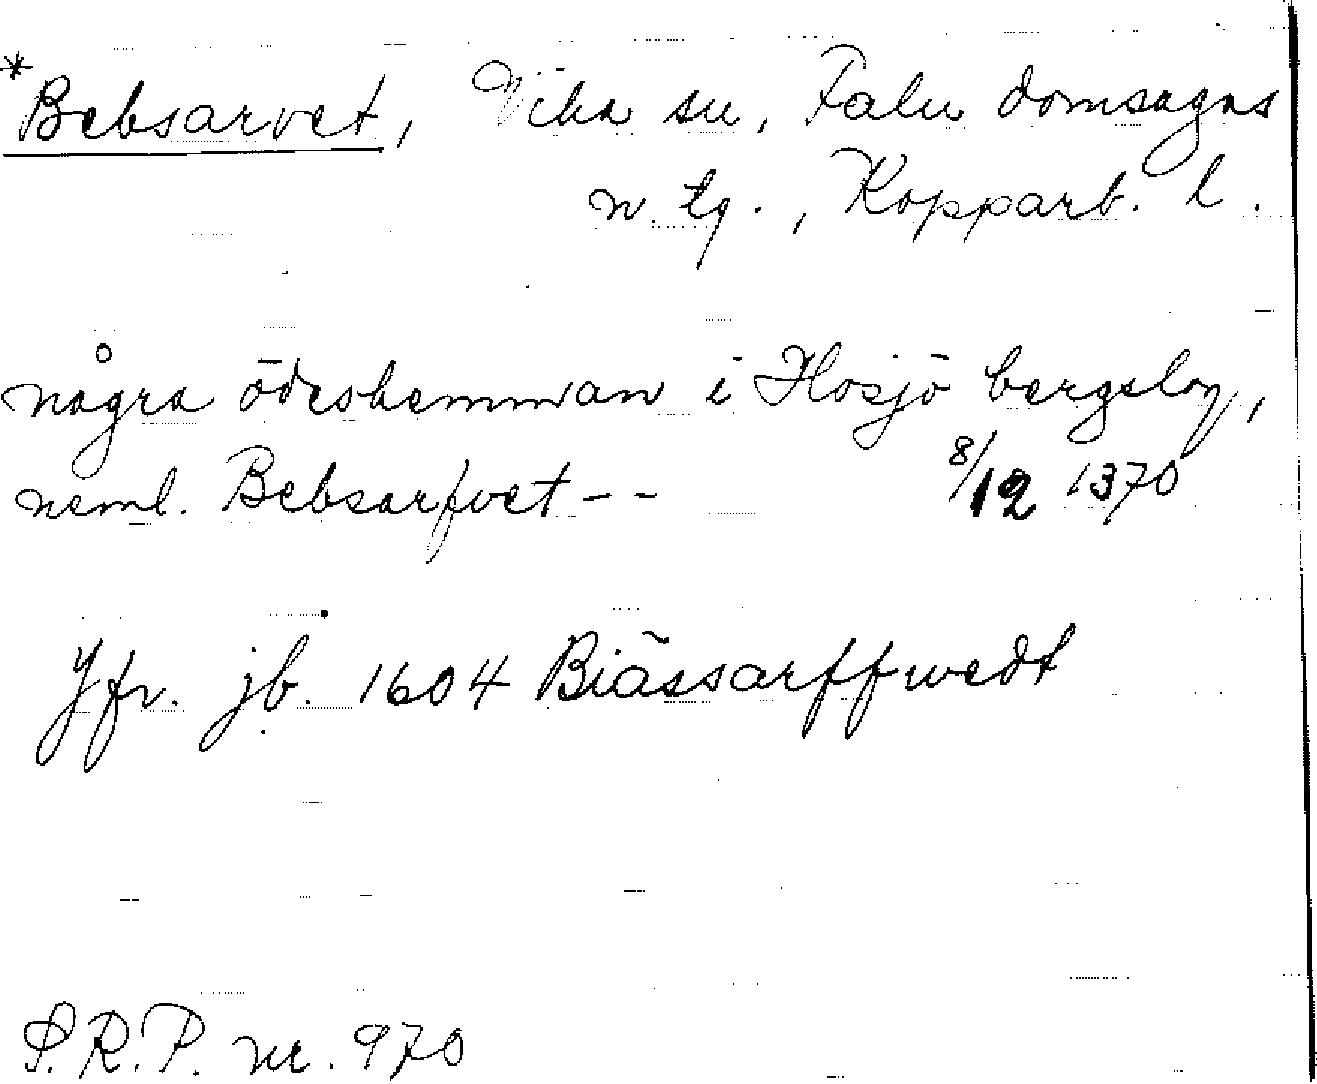 *Bebsarvet, Vika sn, Falu domsagas
n. tg., Kopparb. l.
några ödeshemman i Hosjö bergslag,
neml. Bebsarfvet --   8/12 1370
Jfr. jb. 1604 Biässarffwedt
S.R.P. nr. 970